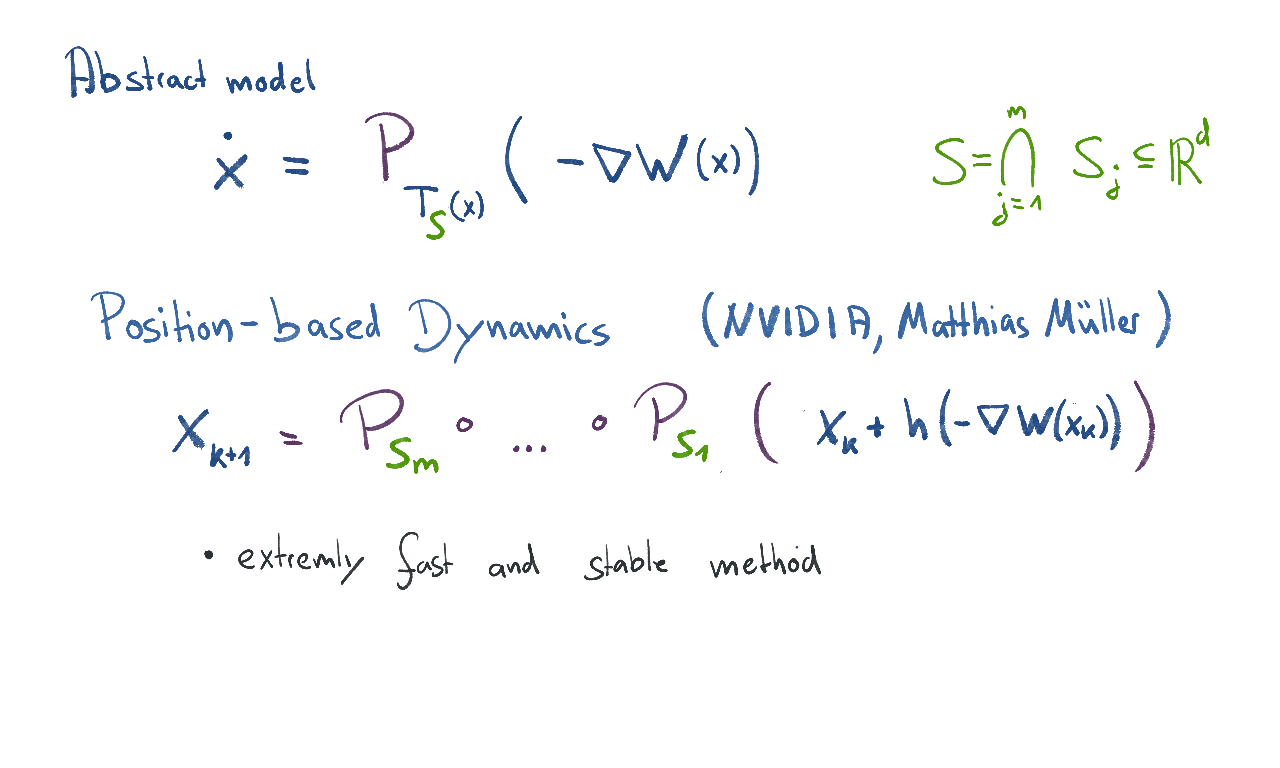 Abstract model
ẋ = P_{T_S(x)} ( -∇W(x)) S = ⋂_{j=1}^{m} S_j ⊆ ℝ^d
Position-based Dynamics (NVIDIA, Matthias Müller)
x_{k+1} = P_{S_m} ∘ ... ∘ P_{S_1} ( x_k + h(-∇W(x_k)) )
• extremly fast and stable method